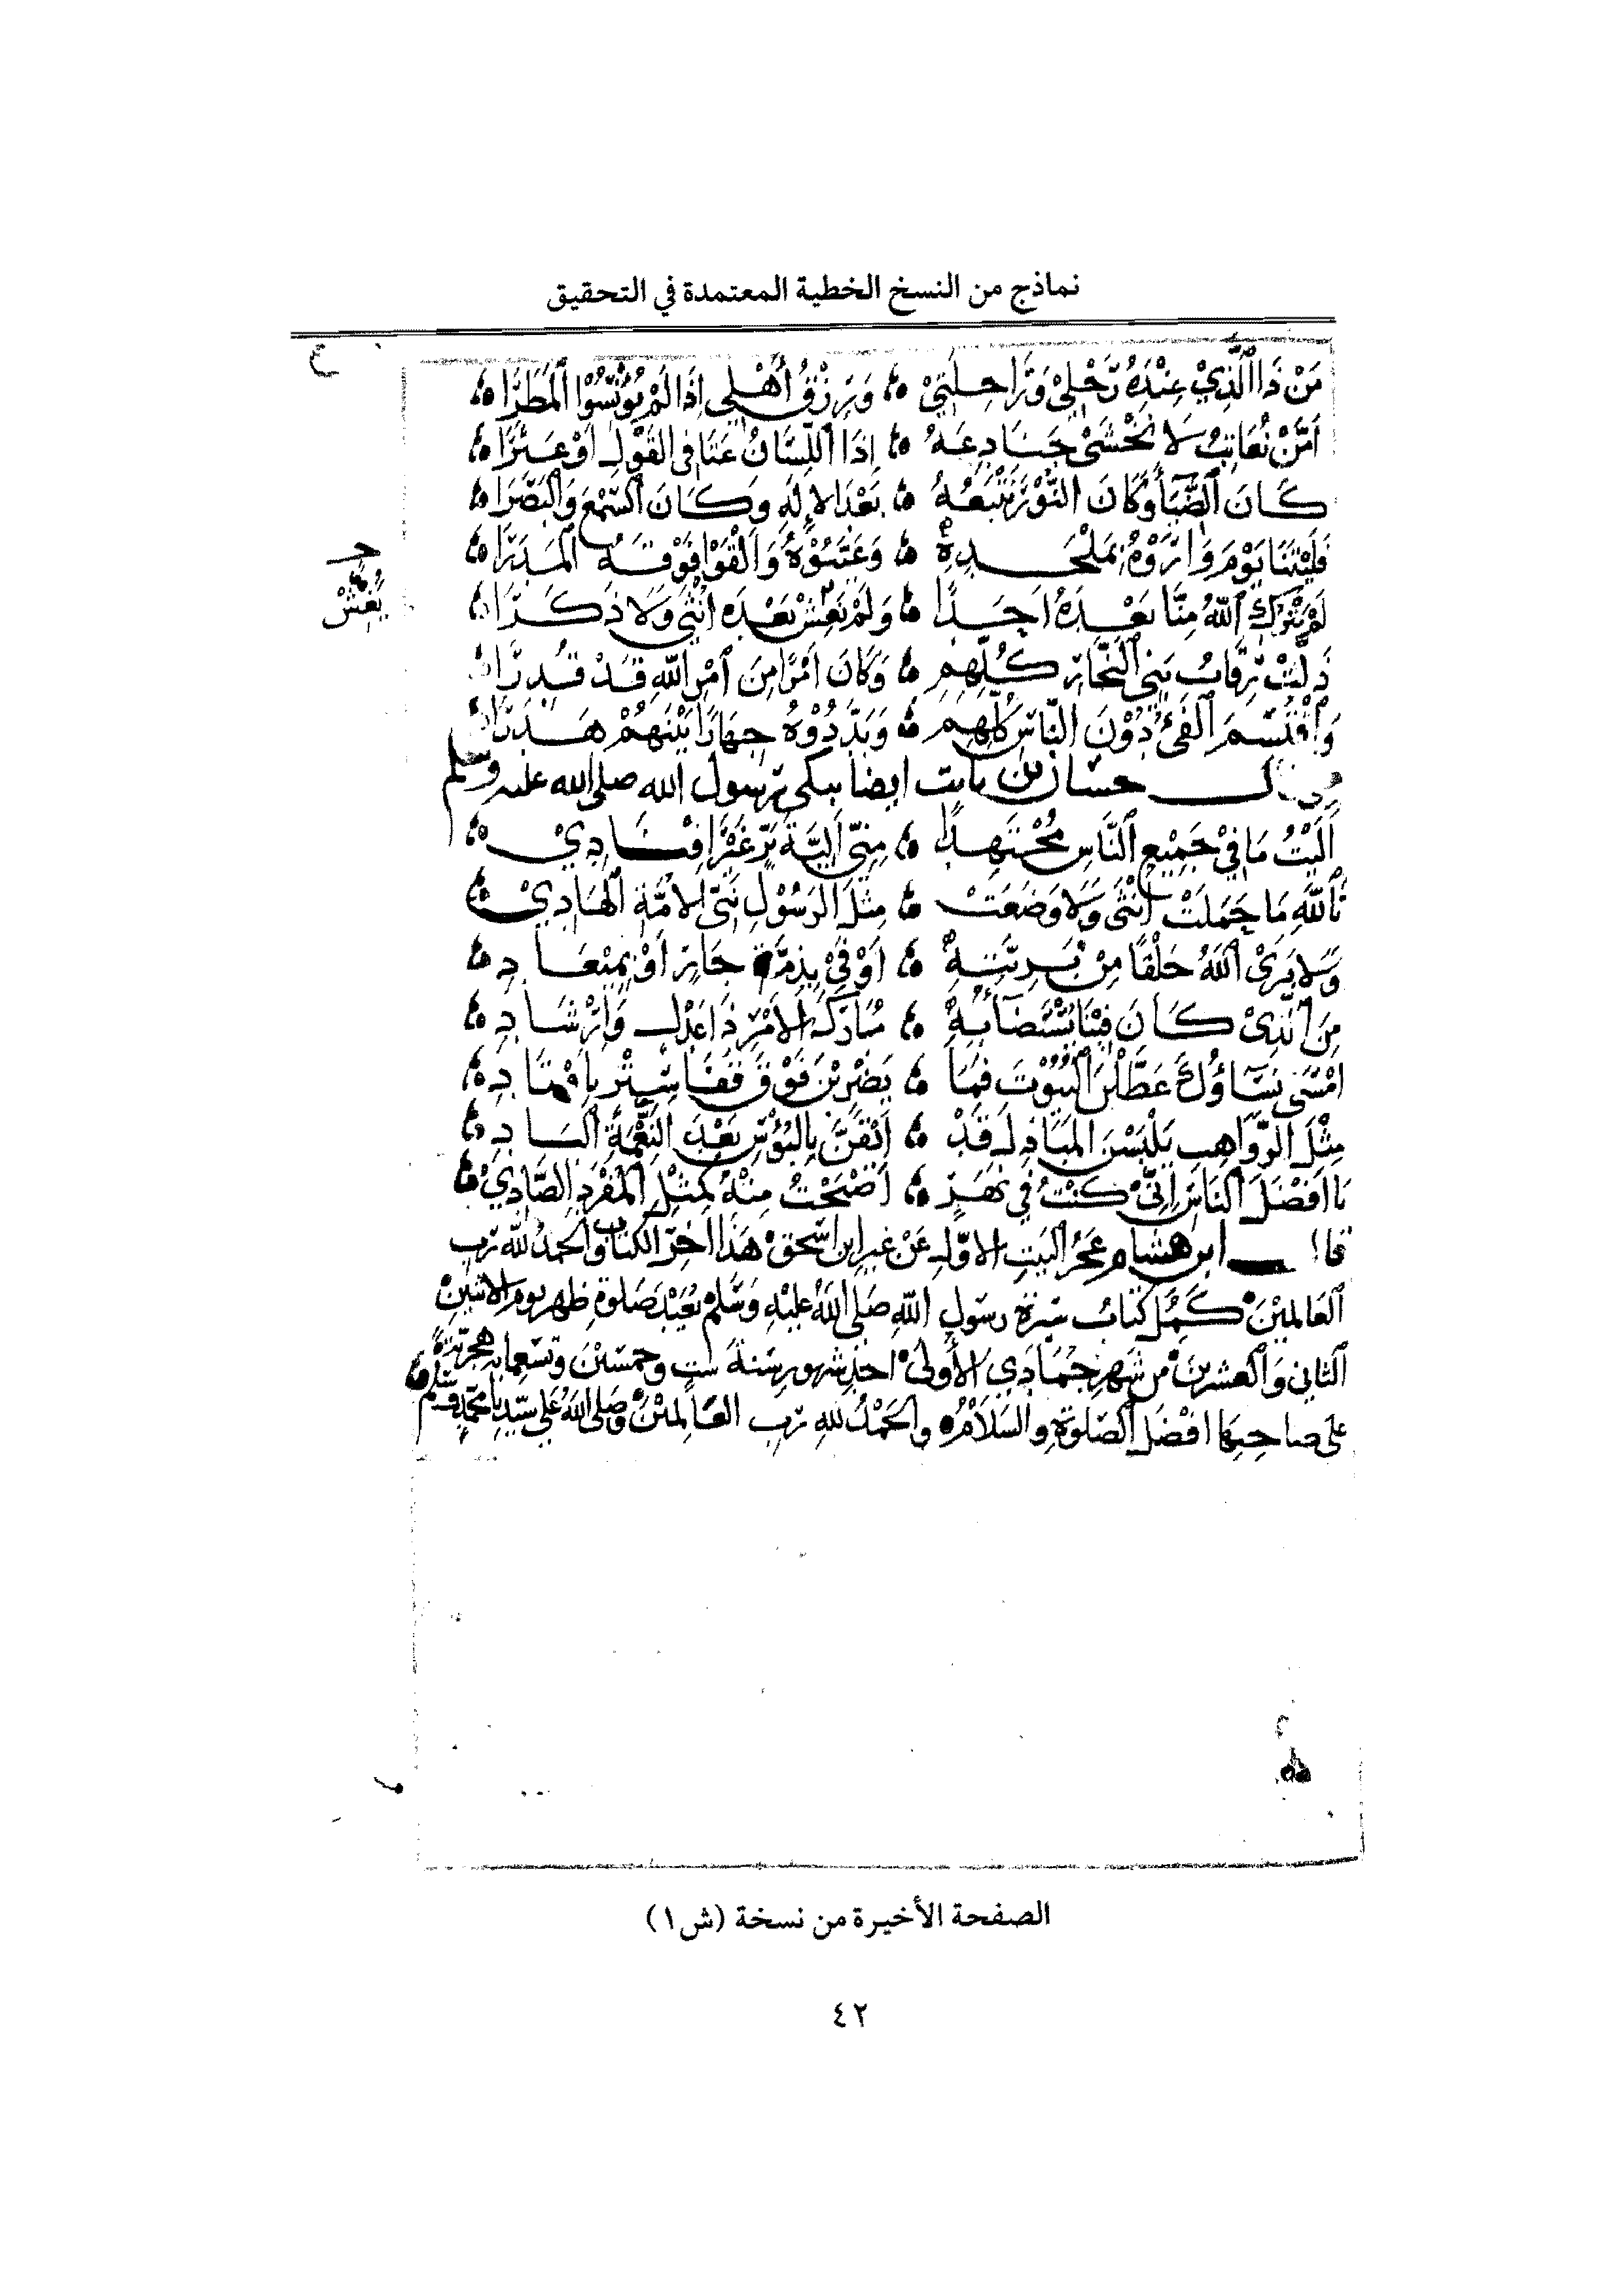 نماذج من النسخ الخطية المعتمدة في التحقيق
مَنْ ذَا الَّذِيْ عِنْدَهُ رَحْلِيْ وَرَاحِلَتِيْ ؞ وَرِزْقُ أَهْلِي إِذَا لَمْ يُؤْنِسُوْا الْمَطَرَا ؞
أَمْ مَنْ نُعَاتِبُ لَا نَخْشَى جَنَادِعَهُ ؞ إِذَا اللِّسَانُ عَتَا فِي القَوْلِ أَوْ عَثَرَا ؞
كَانَ الضِّيَاءُ وَكَانَ النُّوْرَ نَتْبَعُهُ ؞ بَعْدَ الإِلَهِ وَكَانَ السَّمْعَ وَالْبَصَرَا ؞
فَلَيْتَنَا يَوْمَ وَارَوْهُ بِمَلْحَدِهِ ؞ وَغَيَّبُوْهُ وَأَلْقَوْا فَوْقَهُ الْمَدَرَا ؞
لَمْ يَتْرُكِ اللَّهُ مِنَّا بَعْدَهُ أَحَدًا ؞ وَلَمْ يَعِشْ بَعْدَهُ أُنْثَى وَلَا ذَكَرَا ؞
يُعِشْ
ذَلَّتْ رِقَابُ بَنِي النَّجَّارِ كُلِّهِمِ ؞ وَكَانَ أَمْرًا مِنَ أَمْرِ اللَّهِ قَدْ قُدِرَا ؞
وَاقْتُسِمَ الْفَيْءُ دُوْنَ النَّاسِ كُلِّهِمِ ؞ وَبَدَّدُوْهُ جِهَارًا بَيْنَهُمْ هَدَرَا ؞
وقال حسان بن ثابت ايضا يبكي رسول الله صلى الله عليه وسلم
آلَيْتُ مَا فِيْ جَمِيْعِ النَّاسِ مُجْتَهِدًا ؞ مِنِّي أَلِيَّةَ بَرٍّ غَيْرَ إِفْنَادِيْ ؞
تَاللَّهِ مَا حَمَلَتْ أُنْثَى وَلَا وَضَعَتْ ؞ مِثْلَ الرَسُوْلِ نَبِيِّ الأُمَّةِ الْهَادِيْ ؞
وَلَا يَرَى اللَّهُ خَلْقًا مِنْ بَرِيَّتِهِ ؞ أَوْفَى بِذِمَّةِ جَارٍ أَوْ بِمِيْعَادِ ؞
مِنَ الَّذِيْ كَانَ فِيْنَا يُسْتَضَاءُ بِهِ ؞ مُبَارَكَ الأَمْرِ ذَا عَدْلٍ وَإِرْشَادِ ؞
أَمْسَى نِسَاؤُكَ عَطَّلْنَ الْبُيُوْتَ فَمَا ؞ يَضْرِبْنَ فَوْقَ قَفَا سِتْرٍ بِأَوْتَادِ ؞
مِثْلَ الرَّوَاهِبِ يَلْبَسْنَ الْمَبَاذِلَ قَدْ ؞ أَيْقَنَّ بِالبُؤْسِ بَعْدَ النِّعْمَةِ الْبَادِ ؞
يَا أَفْضَلَ النَّاسِ إِنِّي كُنْتُ فِي نَهَرٍ ؞ أَصْبَحْتُ مِنْهُ كَمِثْلِ الْمُفْرَدِ الصَّادِيْ ؞
قال ابن هشام عَجُزُ الْبَيْتِ الأَوَّلِ عَنْ غَيْرِ ابْنِ اسْحَقَ هَذَا آخِرُ الكِتَابِ وَالْحَمْدُ لِلَّهِ رَبِّ
الْعَالَمِيْنَ كَمُلَ كِتَابُ سِيْرَةِ رَسُولِ اللَّهِ صَلَى اللَّهُ عَلَيْهِ وَسَّلَمَ بُعَيْدَ صَلوةِ ظهر يوم الاثنين
الثَاني وَالْعشرينَ من شَهْرِ جُمَادَي الأُولَى احدِ شهور سنة ست وخمسين وتسعمايه هجريّةً
على صاحبها افْضَلُ الصّلوةِ والسّلَامُ والْحَمْدُ للهِ رَبِ الْعَالمينَ وصلى اللهُ على سيّدِنا محمّدٍ وسلم
الصفحة الأخيرة من نسخة (ش١)
٤٢